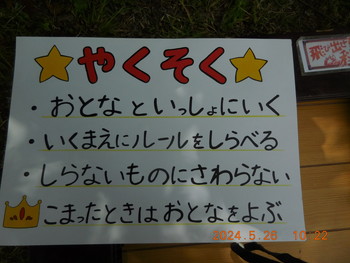 やくそく
・おとなといっしょにいく
・いくまえにルールをしらべる
・しらないものにさわらない
こまったときはおとなをよぶ
飛び出さ
2024.5.28 10:22